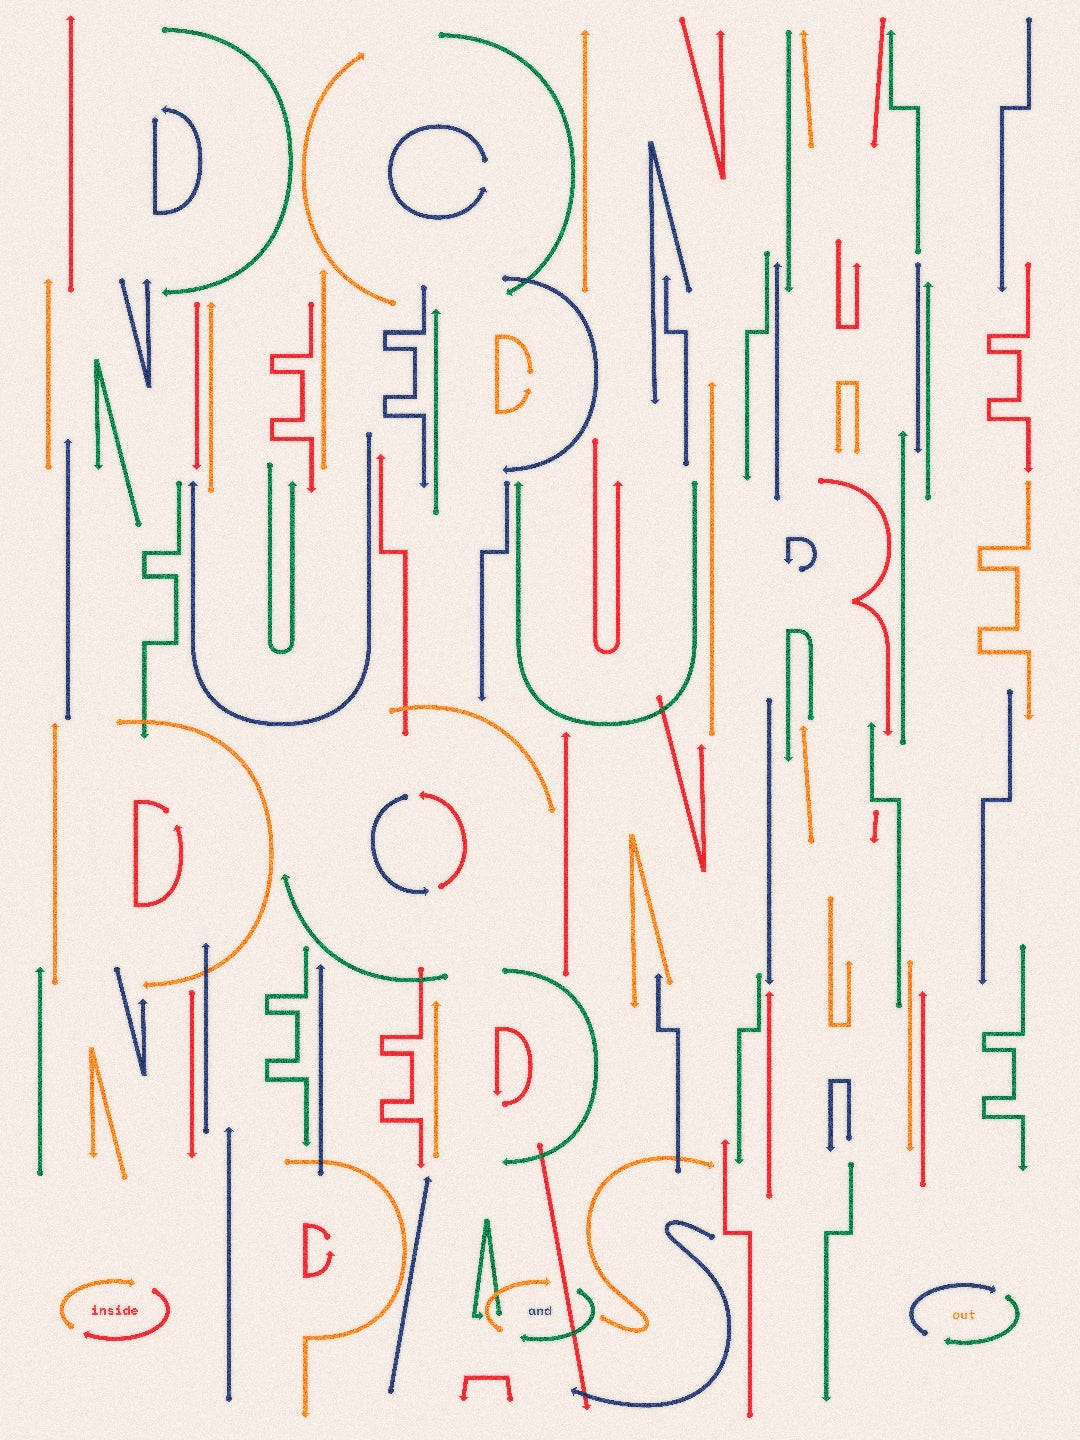 DON'T
NEED THE
FUTURE
DON'T
NEED THE
PAST
inside and out